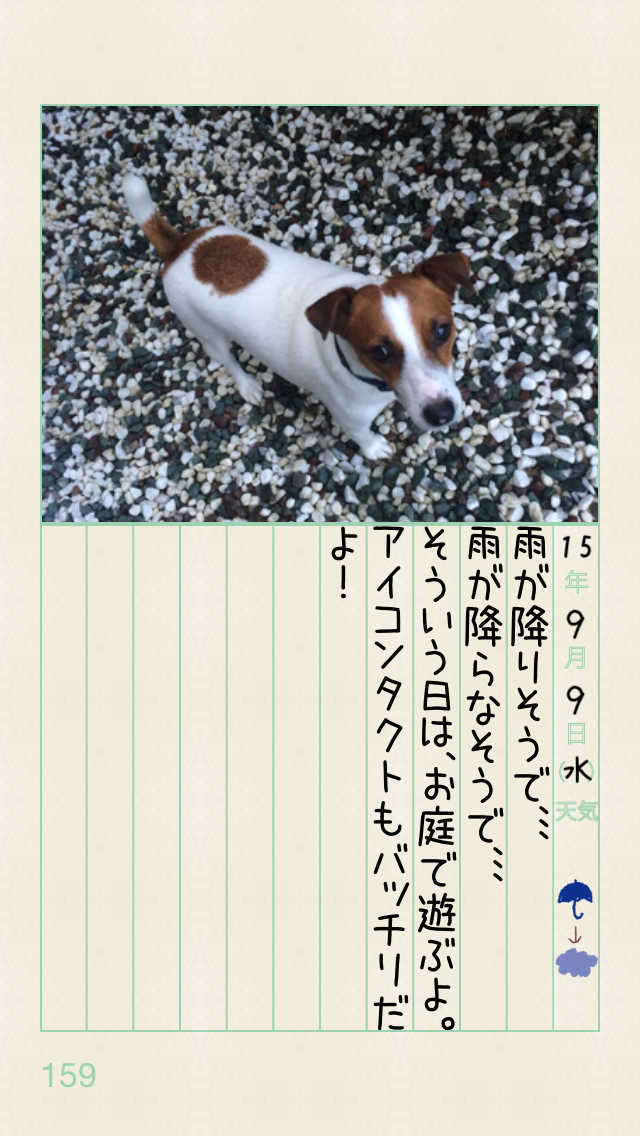 15年9月9日(水)天気
雨が降りそうで…
雨が降らなそうで…
そういう日は、お庭で遊ぶよ。
アイコンタクトもバッチリだ
よ！
159